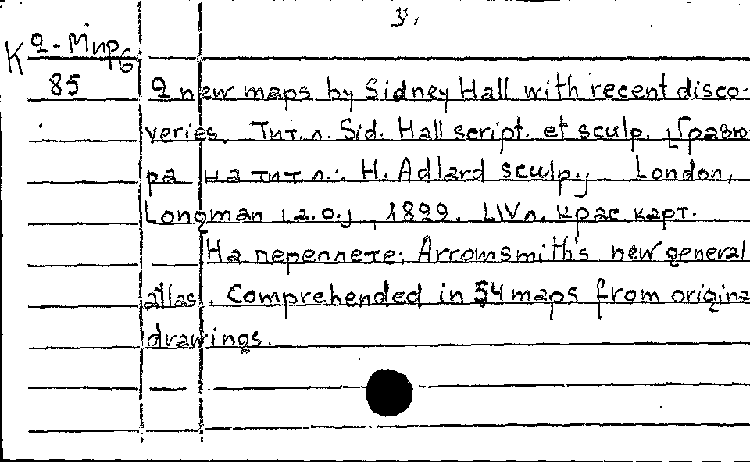 3.
K 2-Мир6
85 2 new maps by Sidney Hall with recent disco-
veries. Тит.л. Sid. Hall script. et sculp. [Гравю
ра на тит.л.: H. Adlard sculp.] London,
Longman [a.o.], 1899. LIV л. крас карт.
На переплете: Arromsmith's new general
atlas. Comprehended in 54 maps from origina
drawings.